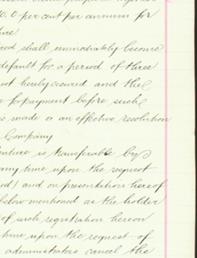 per cent per annum for
shall immediately become
default for a period of three
hereby secured and the
repayment before such
made or an effective resolution
Company
is transferable by
any time upon the request
and on presentation hereof
below mentioned as the holder
of such registration hereon
time upon the request of
administrators cancel the